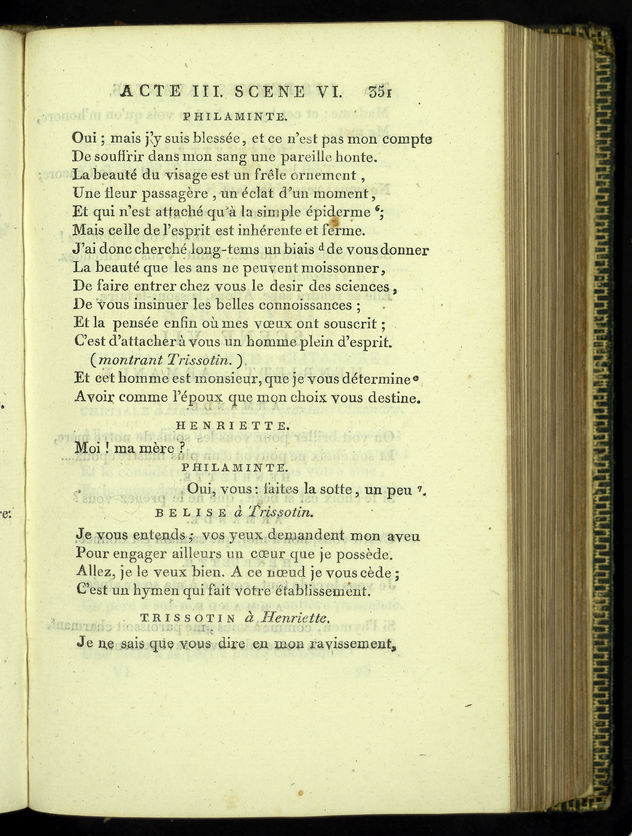 ACTE III. SCENE VI. 351
PHILAMINTE.
Oui ; mais j'y suis blessée, et ce n'est pas mon compte
De souffrir dans mon sang une pareille honte.
La beauté du visage est un frêle ornement ,
Une fleur passagère , un éclat d'un moment ,
Et qui n'est attaché qu'à la simple épiderme ⁶;
Mais celle de l'esprit est inhérente et ferme.
J'ai donc cherché long-tems un biais ᵈ de vous donner
La beauté que les ans ne peuvent moissonner ,
De faire entrer chez vous le desir des sciences ,
De vous insinuer les belles connoissances ;
Et la pensée enfin où mes vœux ont souscrit ;
C'est d'attacher à vous un homme plein d'esprit.
( montrant Trissotin. )
Et cet homme est monsieur, que je vous détermine ᵉ
Avoir comme l'époux que mon choix vous destine.
HENRIETTE.
Moi ! ma mère ?
PHILAMINTE.
Oui, vous : faites la sotte , un peu ⁷.
BELISE à Trissotin.
Je vous entends ; vos yeux demandent mon aveu
Pour engager ailleurs un cœur que je possède.
Allez, je le veux bien. A ce nœud je vous cède ;
C'est un hymen qui fait votre établissement.
TRISSOTIN à Henriette.
Je ne sais que vous dire en mon ravissement,
re: